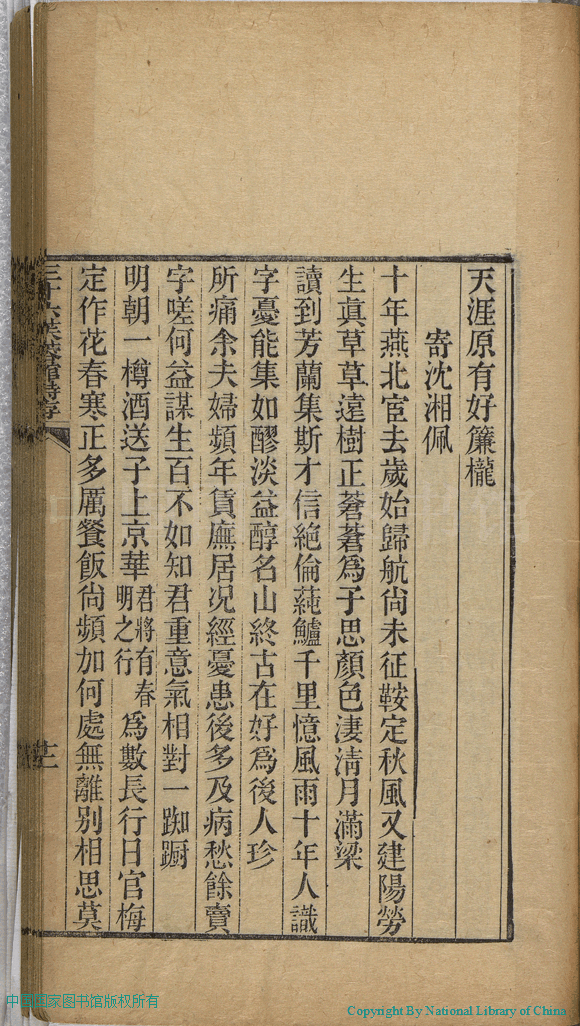 天涯原有好簾櫳
寄沈湘佩
十年燕北宦去歲始歸航尚未征鞍定秋風又建陽勞
生眞草草遠樹正蒼蒼爲子思顏色淒清月滿梁
讀到芳蘭集斯才信絕倫蒓鱸千里憶風雨十年人識
字憂能集如醪淡益醇名山終古在好爲後人珍
所痛余夫婦頻年賃廡居况經憂患後多及病愁餘賣
字嗟何益謀生百不如知君重意氣相對一踟躕
明朝一樽酒送子上京華君將有春明之行爲數長行日官梅
定作花春寒正多厲餐飯尙頻加何處無離別相思莫
三十六芙蓉館詩存
中国国家图书馆版权所有
Copyright By National Library of China